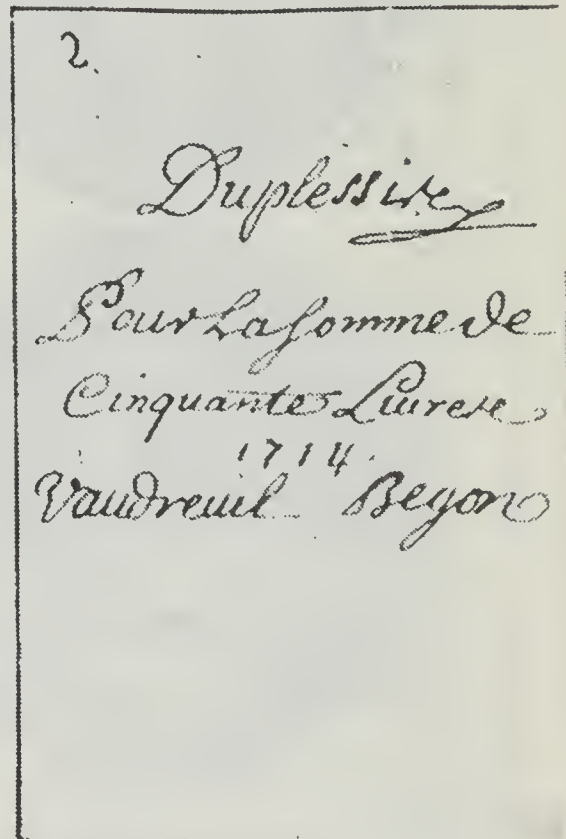 2.
Duplessis
Pour La somme de
Cinquante Liures
1714.
Vaudreuil Begon